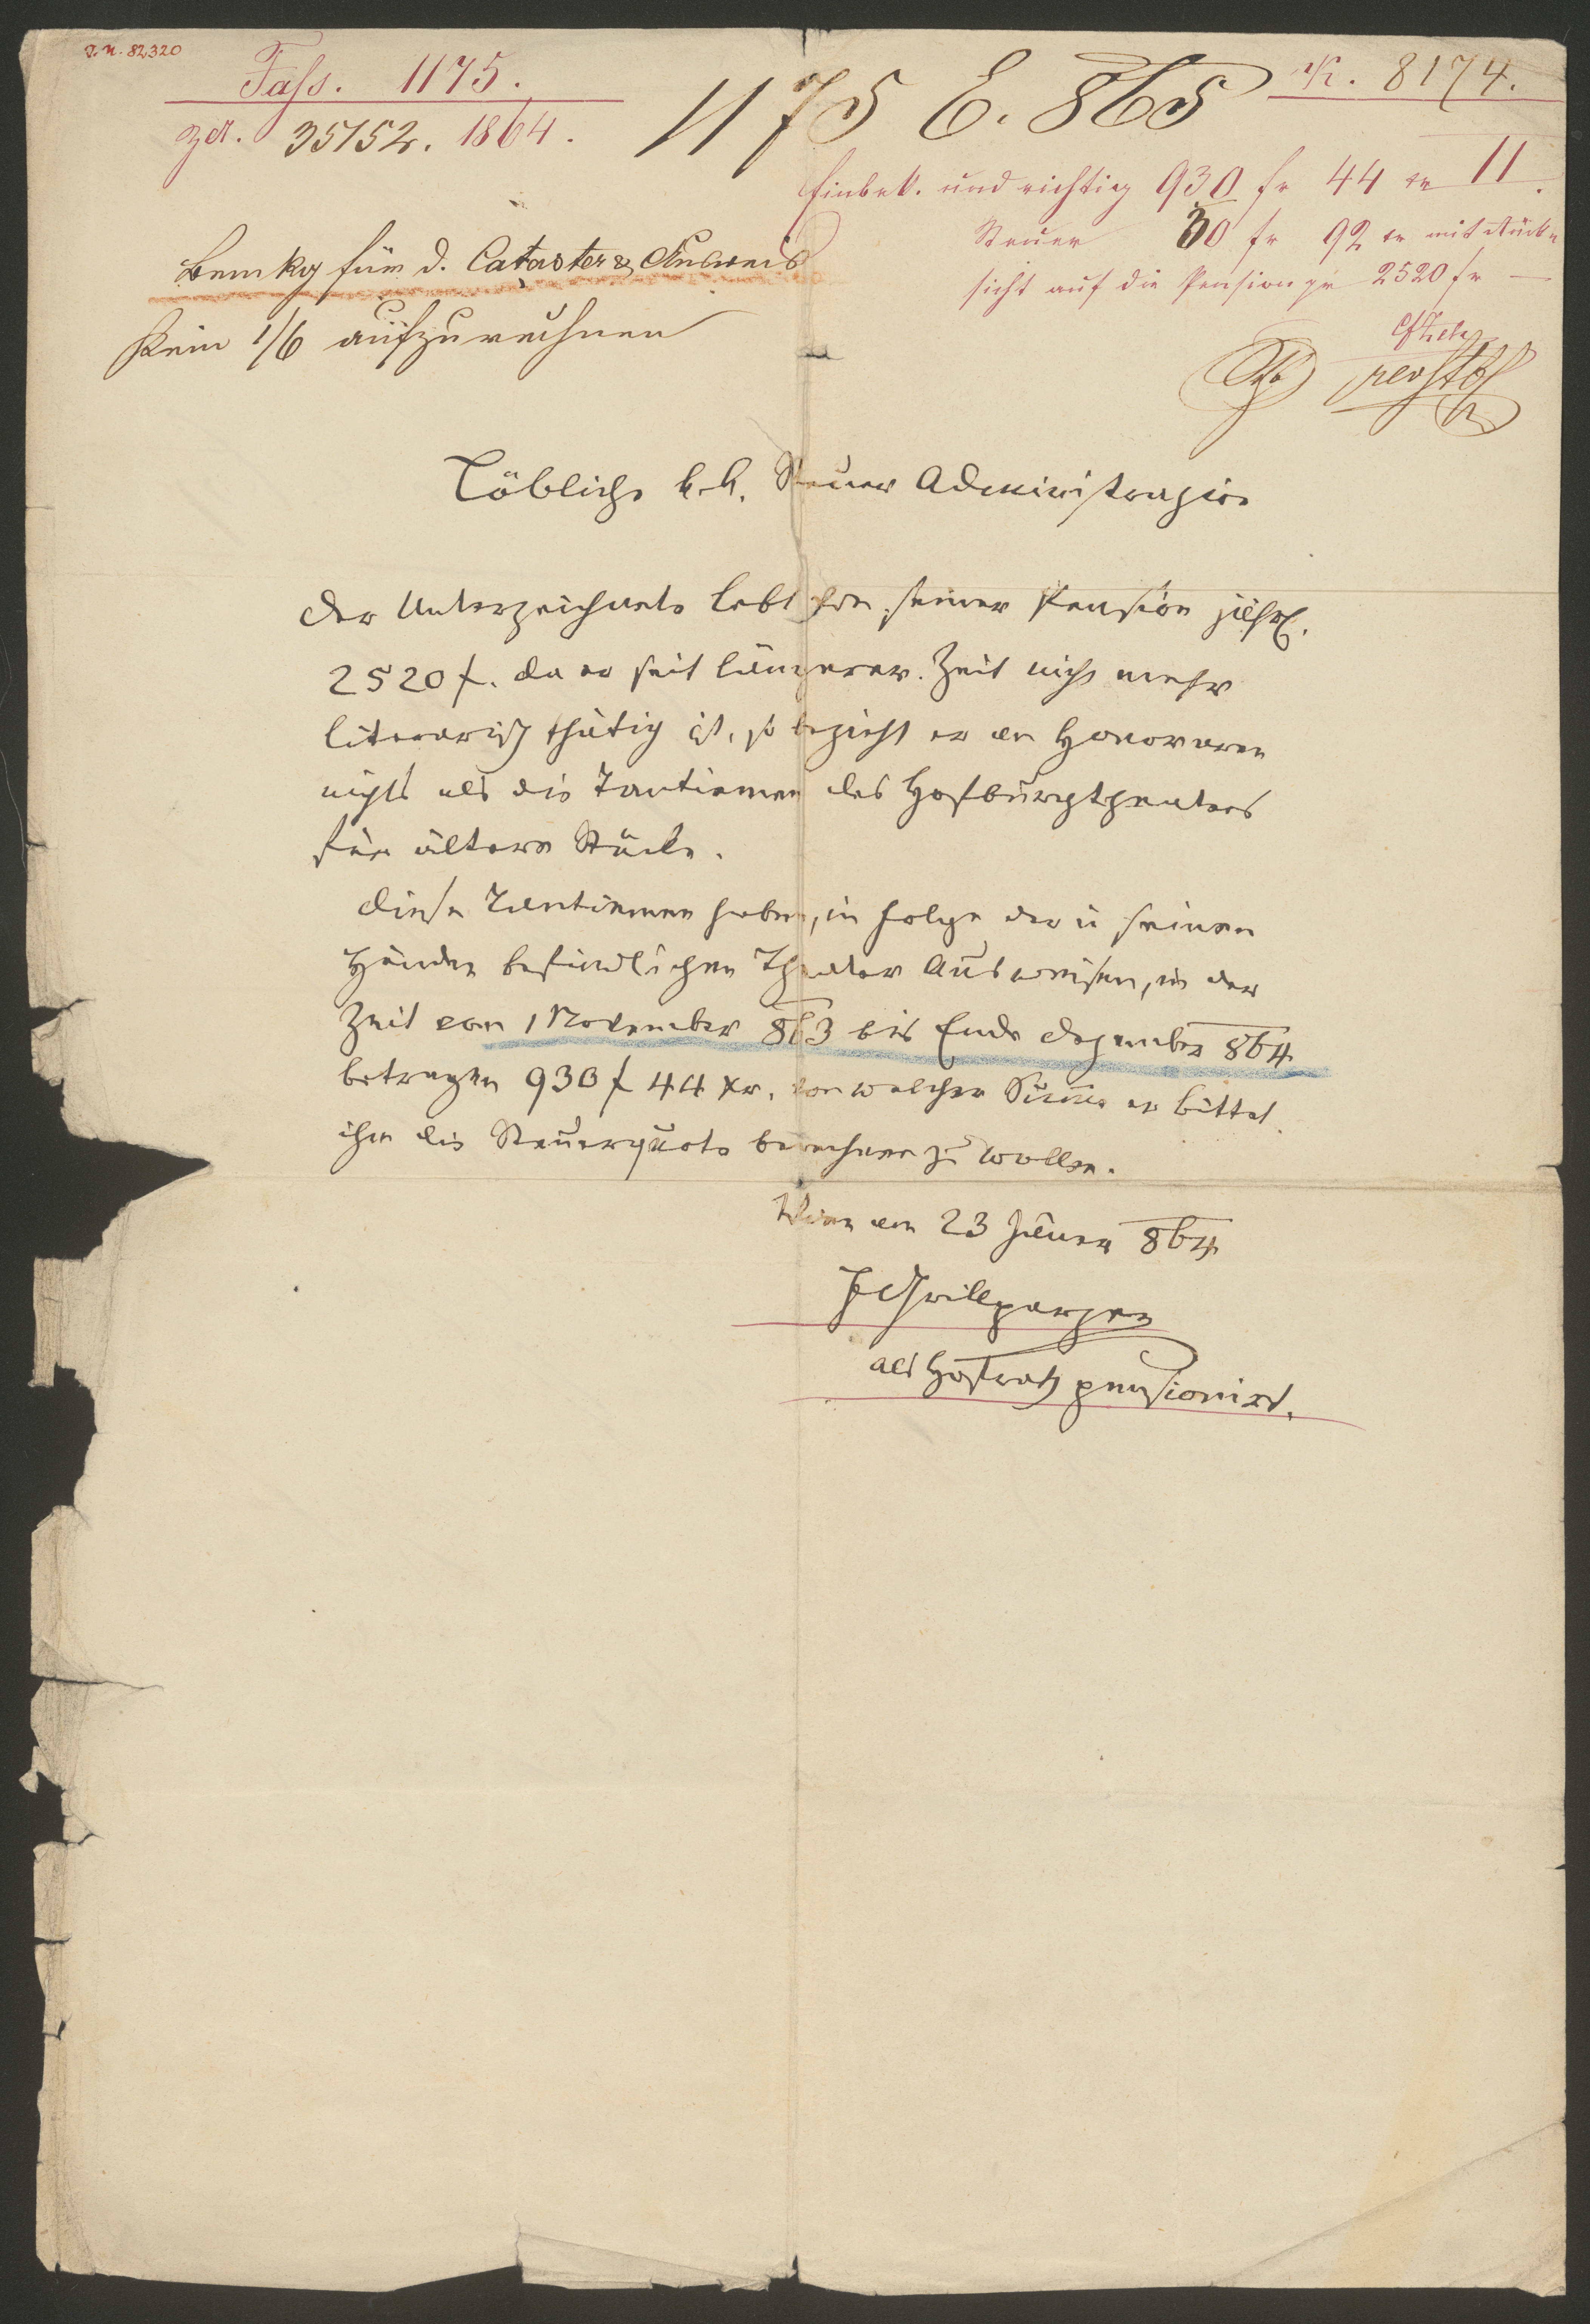 I.N. 82320
Fass. 1175.
zu. 35152. 1864.
1175 E. 865
K. 8174.
Einbek. und richtig 930 fr 44 xr 11.
Steuer 30 fr 92 xr mit Rück-
sicht auf die Pension pr 2520 fr —
Bemkg für d. Cataster & Ausweis
Kein 1/6 aufzurechnen
Löbliche k.k. Steuer Administrazion
Der Unterzeichnete lebt von seiner Pension jährl.
2520 f. Da er seit längerer Zeit nicht mehr
literarisch thätig ist, so bezieht er an Honoraren
nichts als die Tantiemen des Hofburgtheaters
für ältere Stücke.
Diese Tantiemen haben, in Folge der in seinen
Händen befindlichen Theater Ausweisen, in der
Zeit vom 1 November 863 bis Ende Dezember 864
betragen 930 f 44 xr, von welcher Summe er bittet
ihm die Steuerquote berechnen zu wollen.
Wien am 23 Jäner 864
F Grillparzer
als Hofrath pensionirt.